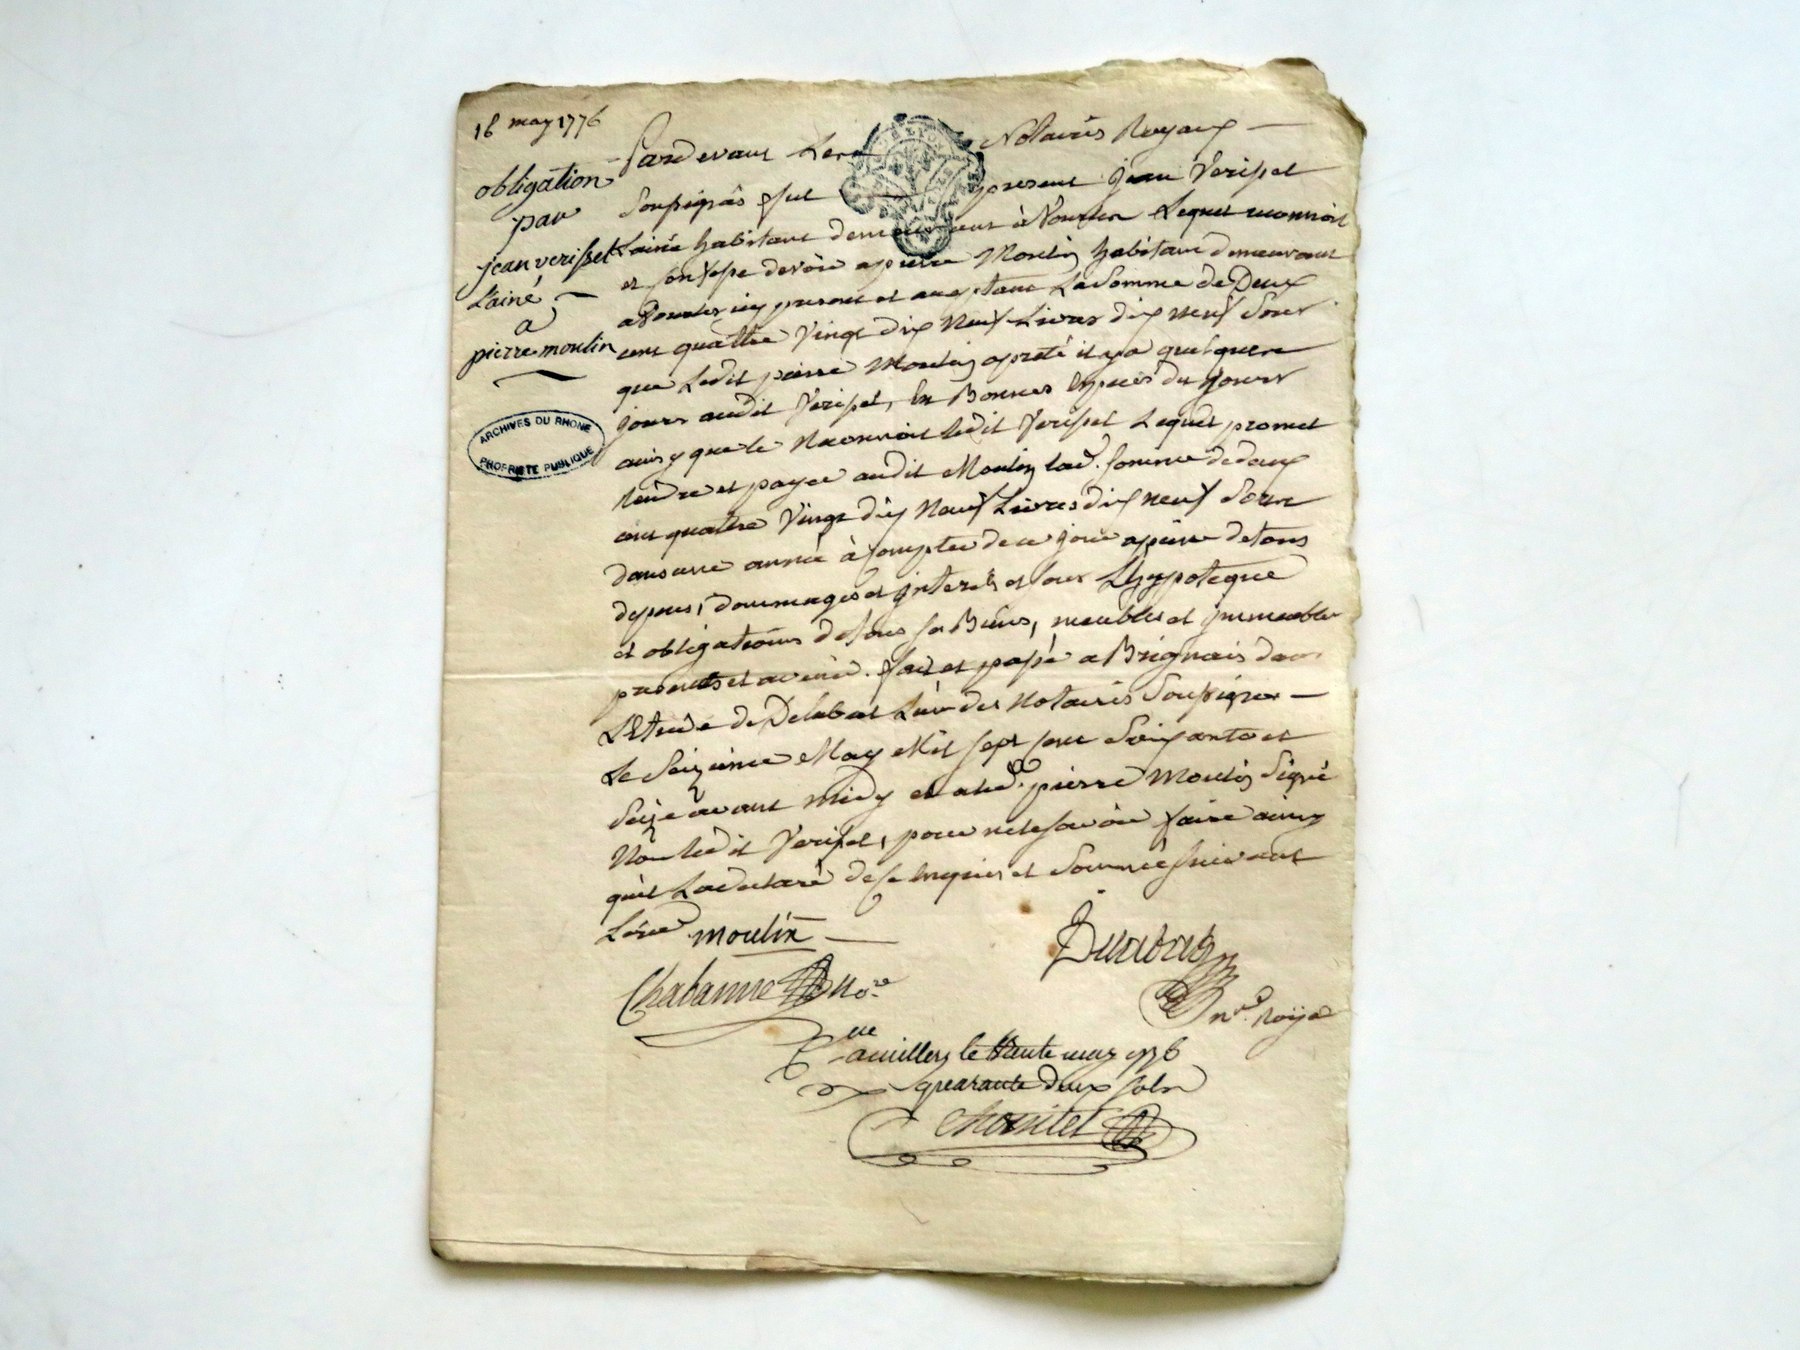 16 may 1776
obligation
par
jean verissel
L'ainé
a
pierre moulin
ARCHIVES DU RHONE
PROPRIETE PUBLIQUE
Pardevant Les Notaires Royaux
Soussignés fut present jean Verissel
Lainé habitant demeurant à Lequel reconnoit
et confesse devoir a pierre Moulin habitant demeurant
a present et acceptant La Somme de Deux
cent quattre Vingt dix Neuf Livres dix neuf Sous
que Ledit pierre Moulin a preté il y a quelques
jours audit Verissel, en Bonnes Especes du Cours
ainsy que le Reconnoit ledit Verissel Lequel promet
rendre et payer audit Moulin lad. somme de deux
cent quattre Vingt dix Neuf Livres dix neuf Sous
dans une année à compter de ce jour a peine de tous
depens, dommages et interets et sous L'hypoteque
et obligations de tous ses Biens, meubles et immeubles
presents et avenir. fait et passé a Brignais dans
L'Etude de Delubat L'un des Notaires Soussignés
Le Seizieme May Mil sept cent Soixante et
Seize avant midy et a led. pierre Moulin Signé
Non ledit Verissel, pour ne le savoir faire ainsy
qu'il La declaré de ce enquis et Sommé suivant
Lord. moulin
Chabanne No.re
nre. Roya
le trente may 1776
quarante deux sols